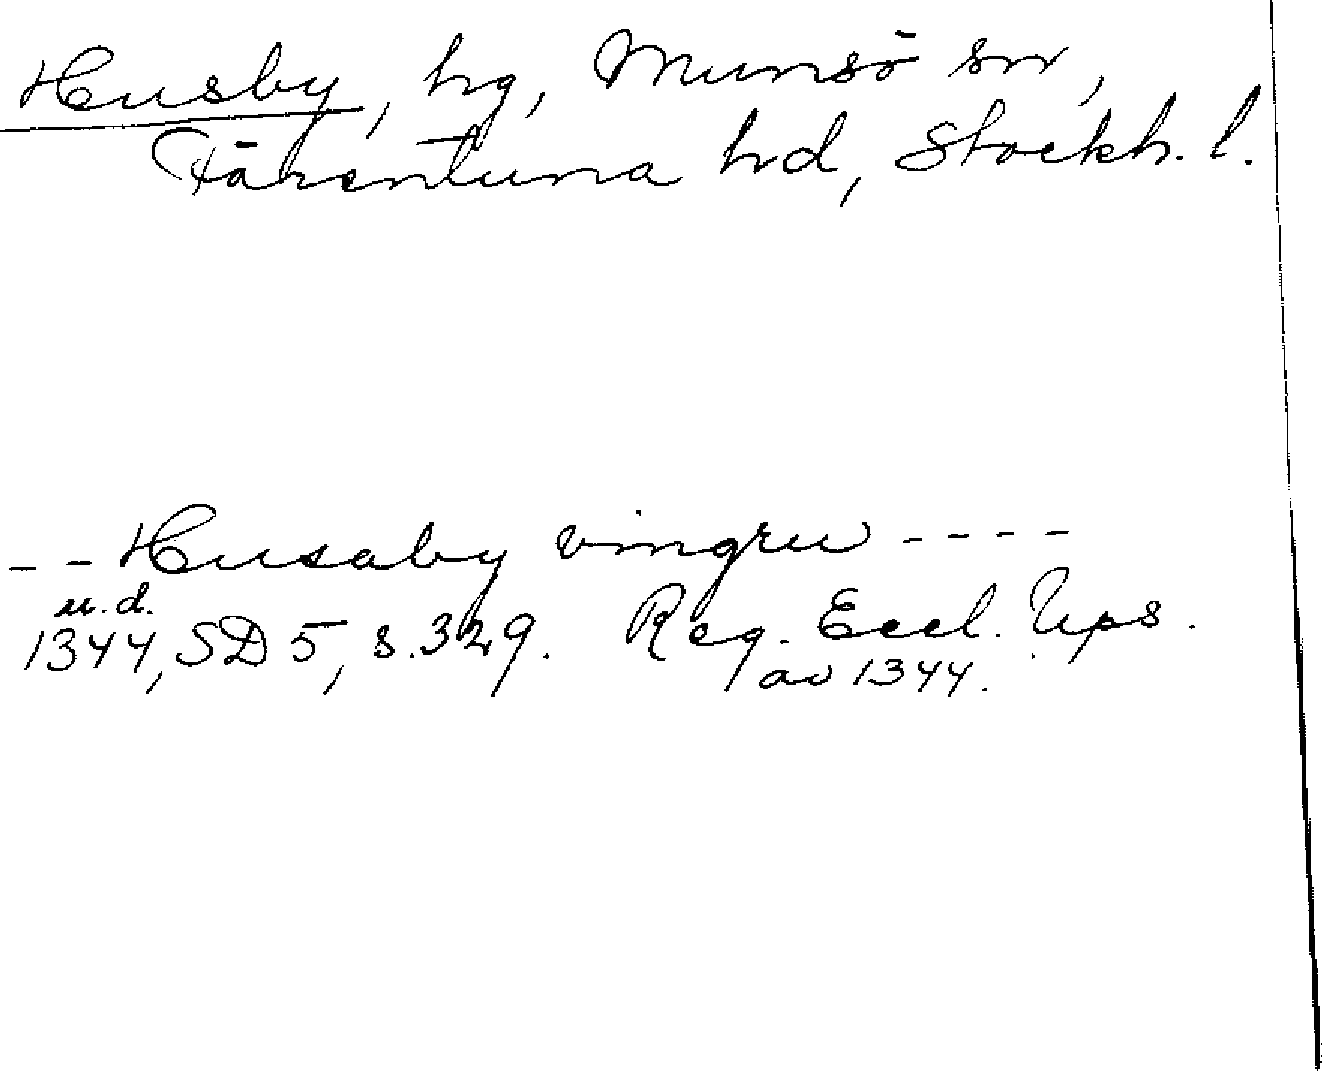 Husby, hg, Munsö sn,
Färentuna hd, Stockh. l.
- - Husaby vingru - - - -
u. d.
1344, SD 5, s. 329. Reg. Eccl. Ups.
av 1344.